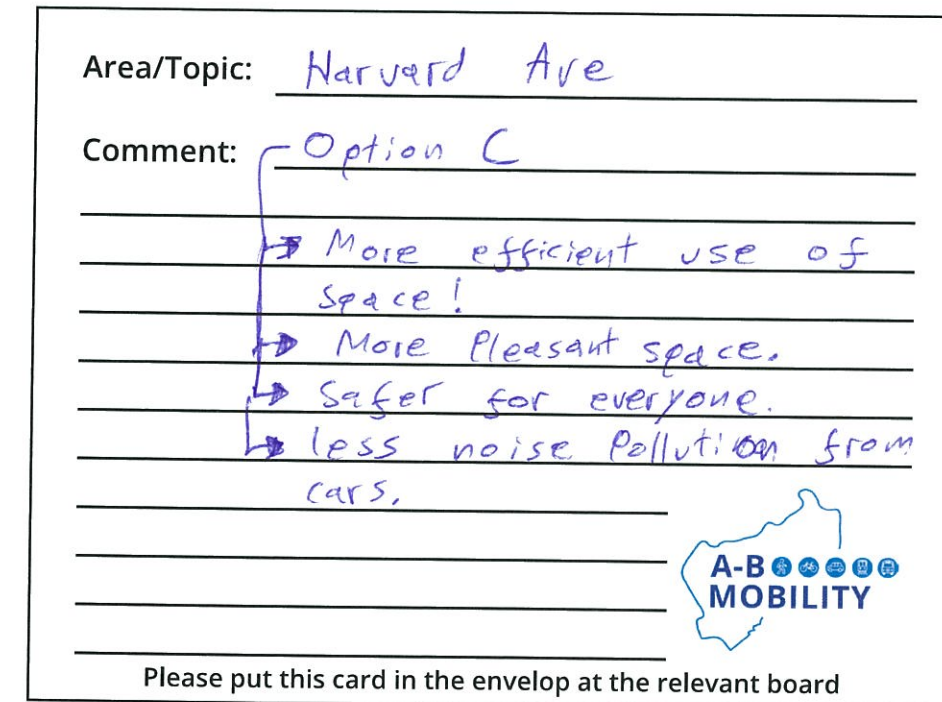 Area/Topic: Harvard Ave
Comment: Option C
More efficient use of
space!
More Pleasant space.
Safer for everyone.
less noise Pollution from
cars.
A-B
MOBILITY
Please put this card in the envelop at the relevant board